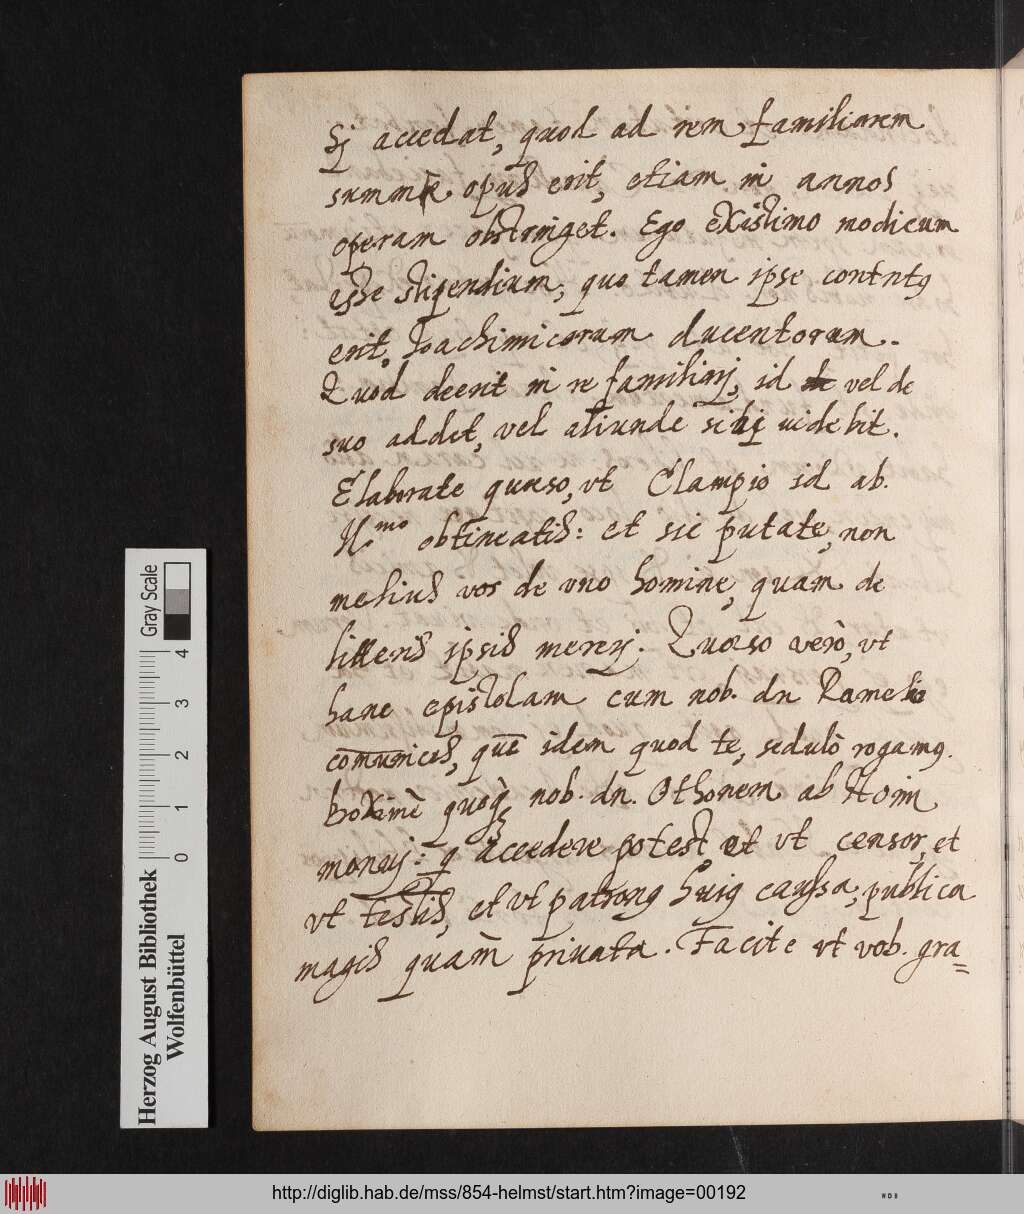 Si accedat, quod ad rem familiarem
summè opus erit, etiam in annos
operam obstringet. Ego existimo modicum
esse stipendium, quo tamen ipse
erit, Joachimicorum ducentorum.
Quod deerit in re familiari, id vel de
suo addet, vel aliunde sibi uidebit.
Elaborate quaeso, vt Clampio id ab
Ill.mo obtineatis: et sic putate, non
melius vos de vno homine, quam de
litteris ipsis mereri. Quaeso verò, vt
hanc epistolam cum nob. dn
comunices, idem quod te, sedulò rogamus.
nob. dn. Othonem ab Hoim
accedere potest et vt censor, et
vt testis, et vt patronus huius caussa, publica
magis quam privata. Facite vt vob. gra=
Herzog August Bibliothek
Wolfenbüttel
Gray Scale
0 1 2 3 4
http://diglib.hab.de/mss/854-helmst/start.htm?image=00192